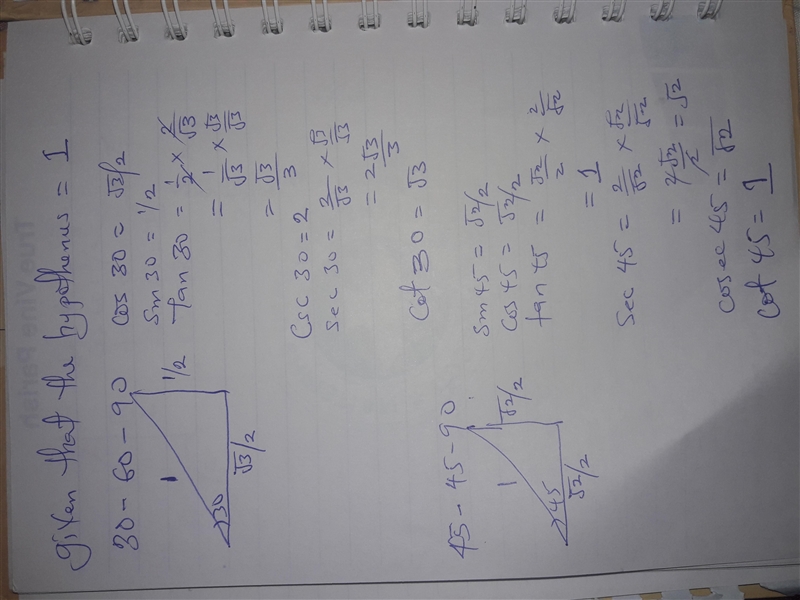 given that the hypothenus = 1
30 - 60 - 90
1
1/2
30
√3/2
Cos 30 = √3/2
Sin 30 = 1/2
tan 30 = 1/2 × 2/√3
= 1/√3 × √3/√3
= √3/3
Csc 30 = 2
Sec 30 = 2/√3 × √3/√3
= 2√3/3
Cot 30 = √3
45 - 45 - 90
1
√2/2
45
√2/2
Sin 45 = √2/2
Cos 45 = √2/2
tan 45 = √2/2 × 2/√2
= 1
Sec 45 = 2/√2 × √2/√2
= 2√2/2 = √2
cosec 45 = √2
Cot 45 = 1